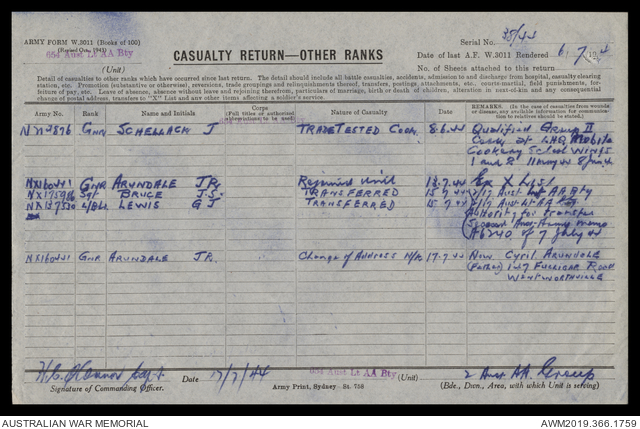 ARMY FORM W.3011 (Books of 100)
(Revised Oct., 1941)
654 Aust Lt AA Bty
(Unit)
CASUALTY RETURN—OTHER RANKS
Serial No. 38/44
Date of last A.F. W.3011 Rendered 6/7/1944
No. of Sheets attached to this return
Detail of casualties to other ranks which have occurred since last return. The detail should include all battle casualties, accidents, admission to and discharge from hospital, casualty clearing
station, etc. Promotion (substantive or otherwise), reversions, trade groupings and relinquishments thereof, transfers, postings, attachments, etc., courts-martial, field punishments, for-
feiture of pay, etc. Leave of absence, absence without leave and rejoining therefrom, particulars of marriage, birth or death of children, alteration in next-of-kin and any consequential
change of postal address, transfers to "X" List and any other items affecting a soldier's service.
Army No. Rank Name and Initials Corps Nature of Casualty Date REMARKS. (In the case of casualties from wounds
(Full titles or authorised abbreviations) to be used
Gnr SCHELLACK J TRADETESTED Cook 8.6.44 Qualified Group II
Cook at LHQ Mobile
Cookery School Wings
1 and 8
NX160441 Gnr ARUNDALE JR. Rejoined Unit Ex X List
NX175986 Sgt BRUCE J.S. TRANSFERRED 15 7 44 2/17 Aust Lt AA Bty
L/Bdr LEWIS G J TRANSFERRED 15 7 44 2/17 Aust Lt AA
Authority for transfer
Aust Army memo
of 7 July 44
NX160441 Gnr ARUNDALE JR. Change of Address N/K 17-7-44 Now Cyril ARUNDALE
(Father) 127 FULLAGAR ROAD
WENTWORTHVILLE
Date 17/7/44
654 Aust Lt AA Bty (Unit)
2 Aust AA Group
Signature of Commanding Officer.
Army Print, Sydney—St. 758
(Bde., Divn., Area, with which Unit is serving)
AUSTRALIAN WAR MEMORIAL
AWM2019.366.1759